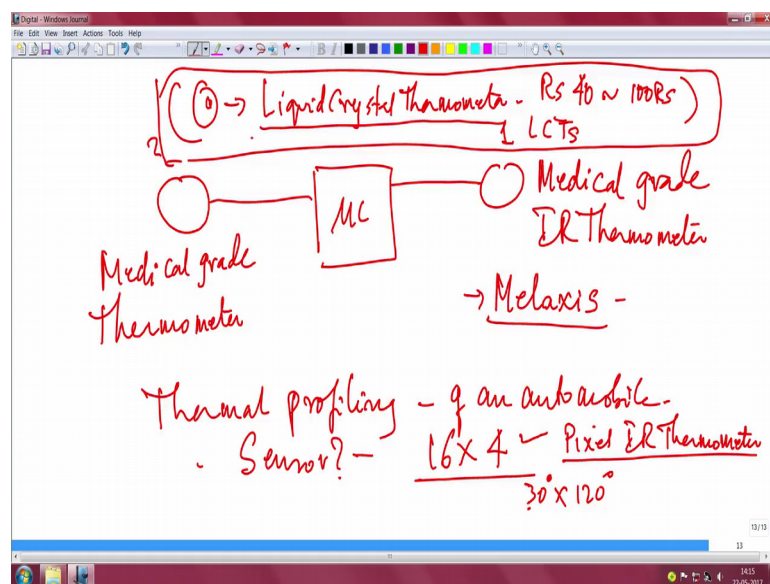 Digital - Windows Journal
File Edit View Insert Actions Tools Help
→ Liquid Crystal Thermometer - Rs 40 ~ 100Rs
1 LCTs
2
MC
Medical grade
IR Thermometer
Medical grade
Thermometer
→ Melaxis -
Thermal profiling - of an automobile.
Sensor? - 16 x 4 Pixel IR Thermometer
30° x 120°
13/13
13
14:15
22-05-2017